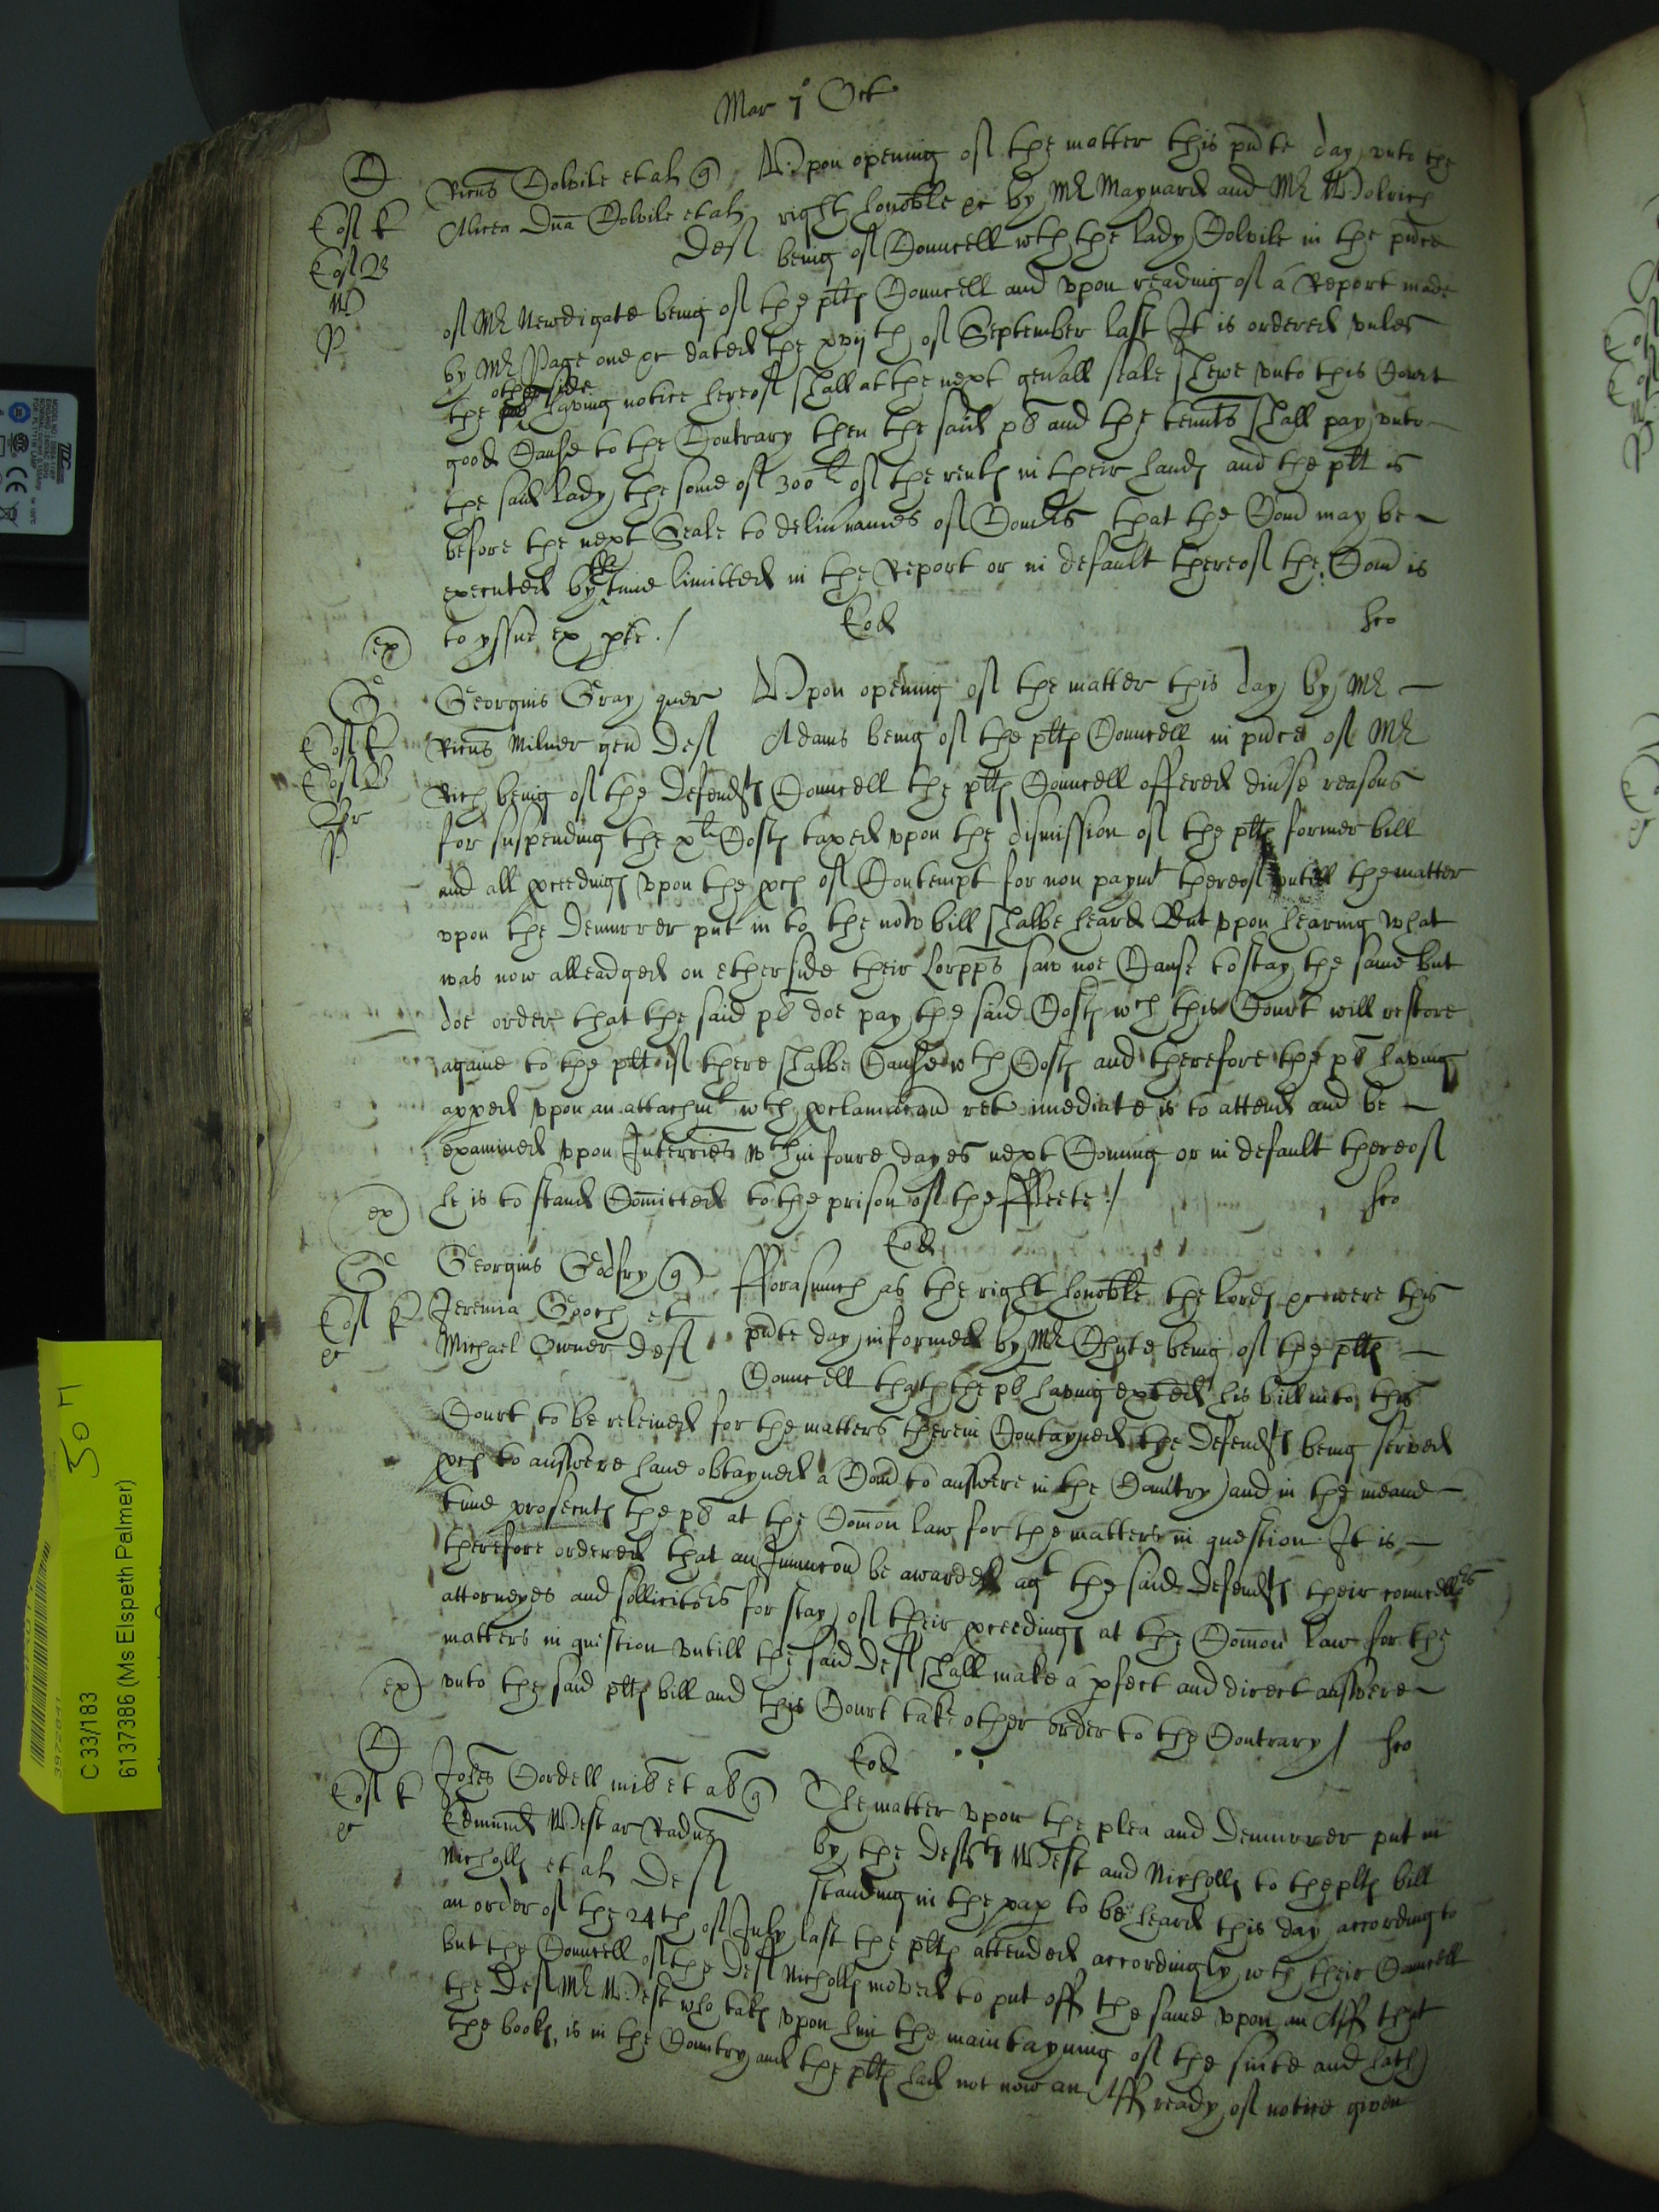 Mar 7° Oct
C
Ricus Colvile et al q Upon opening of the matter this pnte day unto the
Alicea Dna Colvile et al right honoble &c by Mr Maynard and Mr Wolrich
Def being of Councell wth the lady Colvile in the pnce
of Mr Newdigate being of the plts Councell and upon reading of a Report made
by Mr Page one &c dated the xvijth of September last It is ordered unles
other side
the having notice hereof shall at the next genall seale shewe unto this Court
good Cause to the Contrary then the said pl and the tennts shall pay unto
the said lady the some of 300l of the rents in their hands and the plt is
before the next Seale to deliu names of Comrs that the Com may be
the
executed by time limitted in the Report or in default thereof the Com is
to yssue ex pte ./
ex
Eod
Georgius Gray quer Upon opening of the matter this day by Mr
Ricus Milner gen Def Adams being of the plts Councell in pnce of Mr
Rich being of the Defendts Councell the plts Councell offered diuse reasons
for suspending the xl Costs taxed upon the dismission of the plts former bill
and all pceedings upon the pces of Contempt for non paymt thereof untill the matter
upon the Demurrer put in to the now bill shalbe heard But upon hearing what
was now alleadged on ether side their Lorpps saw noe Cause to stay the same but
doe order that the said pl doe pay the said Costs wch this Court will restore
againe to the plt if there shalbe Cause wth Costs and therefore the pl having
apped upon an attachmt wth pclamacon ret imediate is to attend and be
examined upon Interries wthin foure dayes next Coming or in default thereof
he is to stand Comitted to the prison of the ffleete ./
ex
Eod
Georgius Godfry q fforasmuch as the right honoble the Lords &c were this
Jeremia Gooch et
Michael Owner Def pnte day informed by Mr Chute being of the plts
Councell that the pl having exhited his bill into this
Court to be releived for the matters therein Contayned the Defendts being served wth
pces to answere have obtayned a Com to answere in the Countrey and in the meane
time prosecuts the pl at the Comon law for the matters in question It is
therefore ordered that an Iniuncon be awarded agt the said Defendts their councellrs
attorneyes and sollicitors for stay of their pceedings at the Comon law for the
matters in question untill the said Def shall make a pfect and direct answere
ex
unto the said plts bill and this Court take other order to the Contrary /
Eod
C
Johes Cordell mil et al q The matter upon the plea and Demurrer put in
Edmund West ar Radus by the Defts West and Nicholls to the plts bill
Nicholls et al Def standing in the pap to be heard this day according to
an order of the 24th of July last the plts attended accordingly wth their Councell
but the Councell of the Def Nicholls moved to put off the same upon an Aff that
the Def Mr West who taks upon him the maintayning of the suite and hath
the books, is in the Countrey and the plts had not now an Aff ready of notice given
C 33/183
6137386 (Ms Elspeth Palmer)